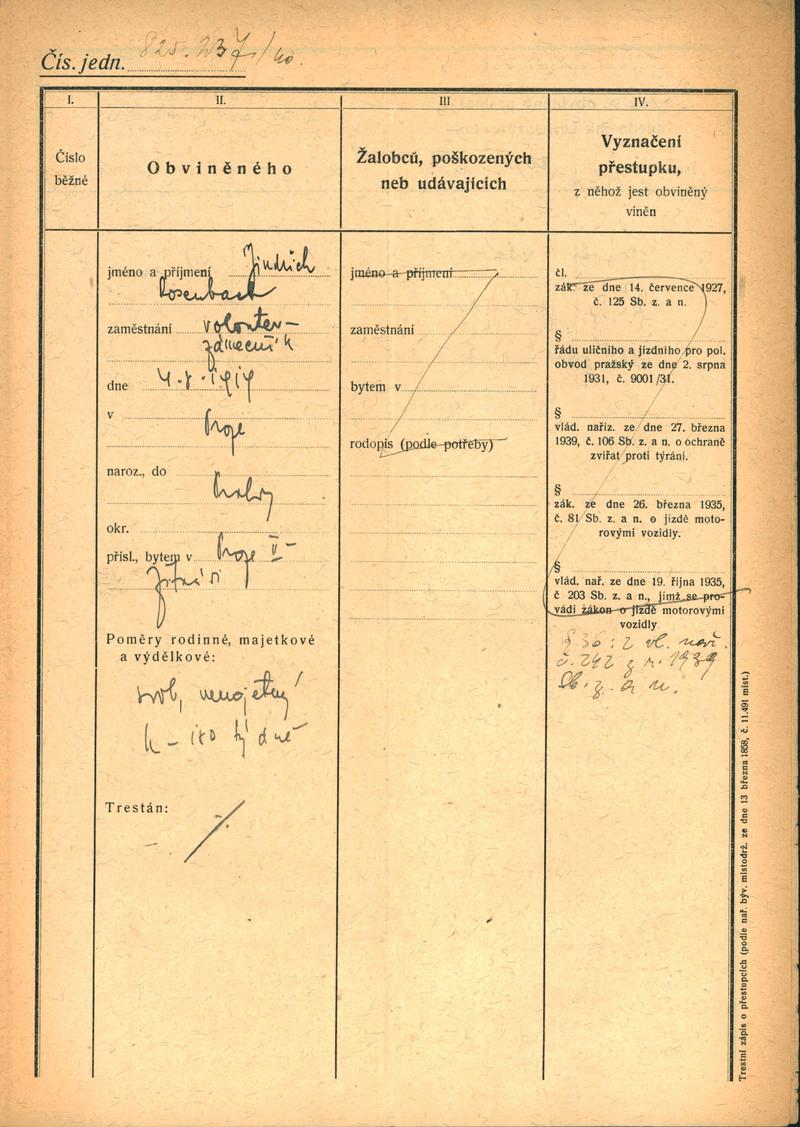 Čís. jedn. 825.237/40.
I.
II.
III
IV.
Číslo
běžné
Obviněného
Žalobců, poškozených
neb udávajících
Vyznačení
přestupku,
z něhož jest obviněný
viněn
jméno a příjmení Jindřich
Rosenbach
zaměstnání volonter-
zámečník
dne
v Praze
naroz., do Prahy
okr.
přísl., bytem v Praze II-
Poměry rodinné, majetkové
a výdělkové:
svob, nemajetný
K - týdně
Trestán:
jméno a příjmení
zaměstnání
bytem v
rodopis (podle potřeby)
čl.
zák. ze dne 14. července 1927,
č. 125 Sb. z. a n.
§
řádu uličního a jízdního pro pol.
obvod pražský ze dne 2. srpna
1931, č. 9001/31.
§
vlád. naříz. ze dne 27. března
1939, č. 106 Sb. z. a n. o ochraně
zvířat proti týrání.
§
zák. ze dne 26. března 1935,
č. 81 Sb. z. a n. o jízdě moto-
rovými vozidly.
§
vlád. nař. ze dne 19. října 1935,
č 203 Sb. z. a n., jímž se pro-
vádí zákon o jízdě motorovými
vozidly
§ 30:2 vl. nař.
č. 242 z r. 1939
Sb. z. a n.
Trestní zápis o přestupcích (podle nař. býv. místodrž. ze dne 13 března 1858, č. 11.491 míst.)